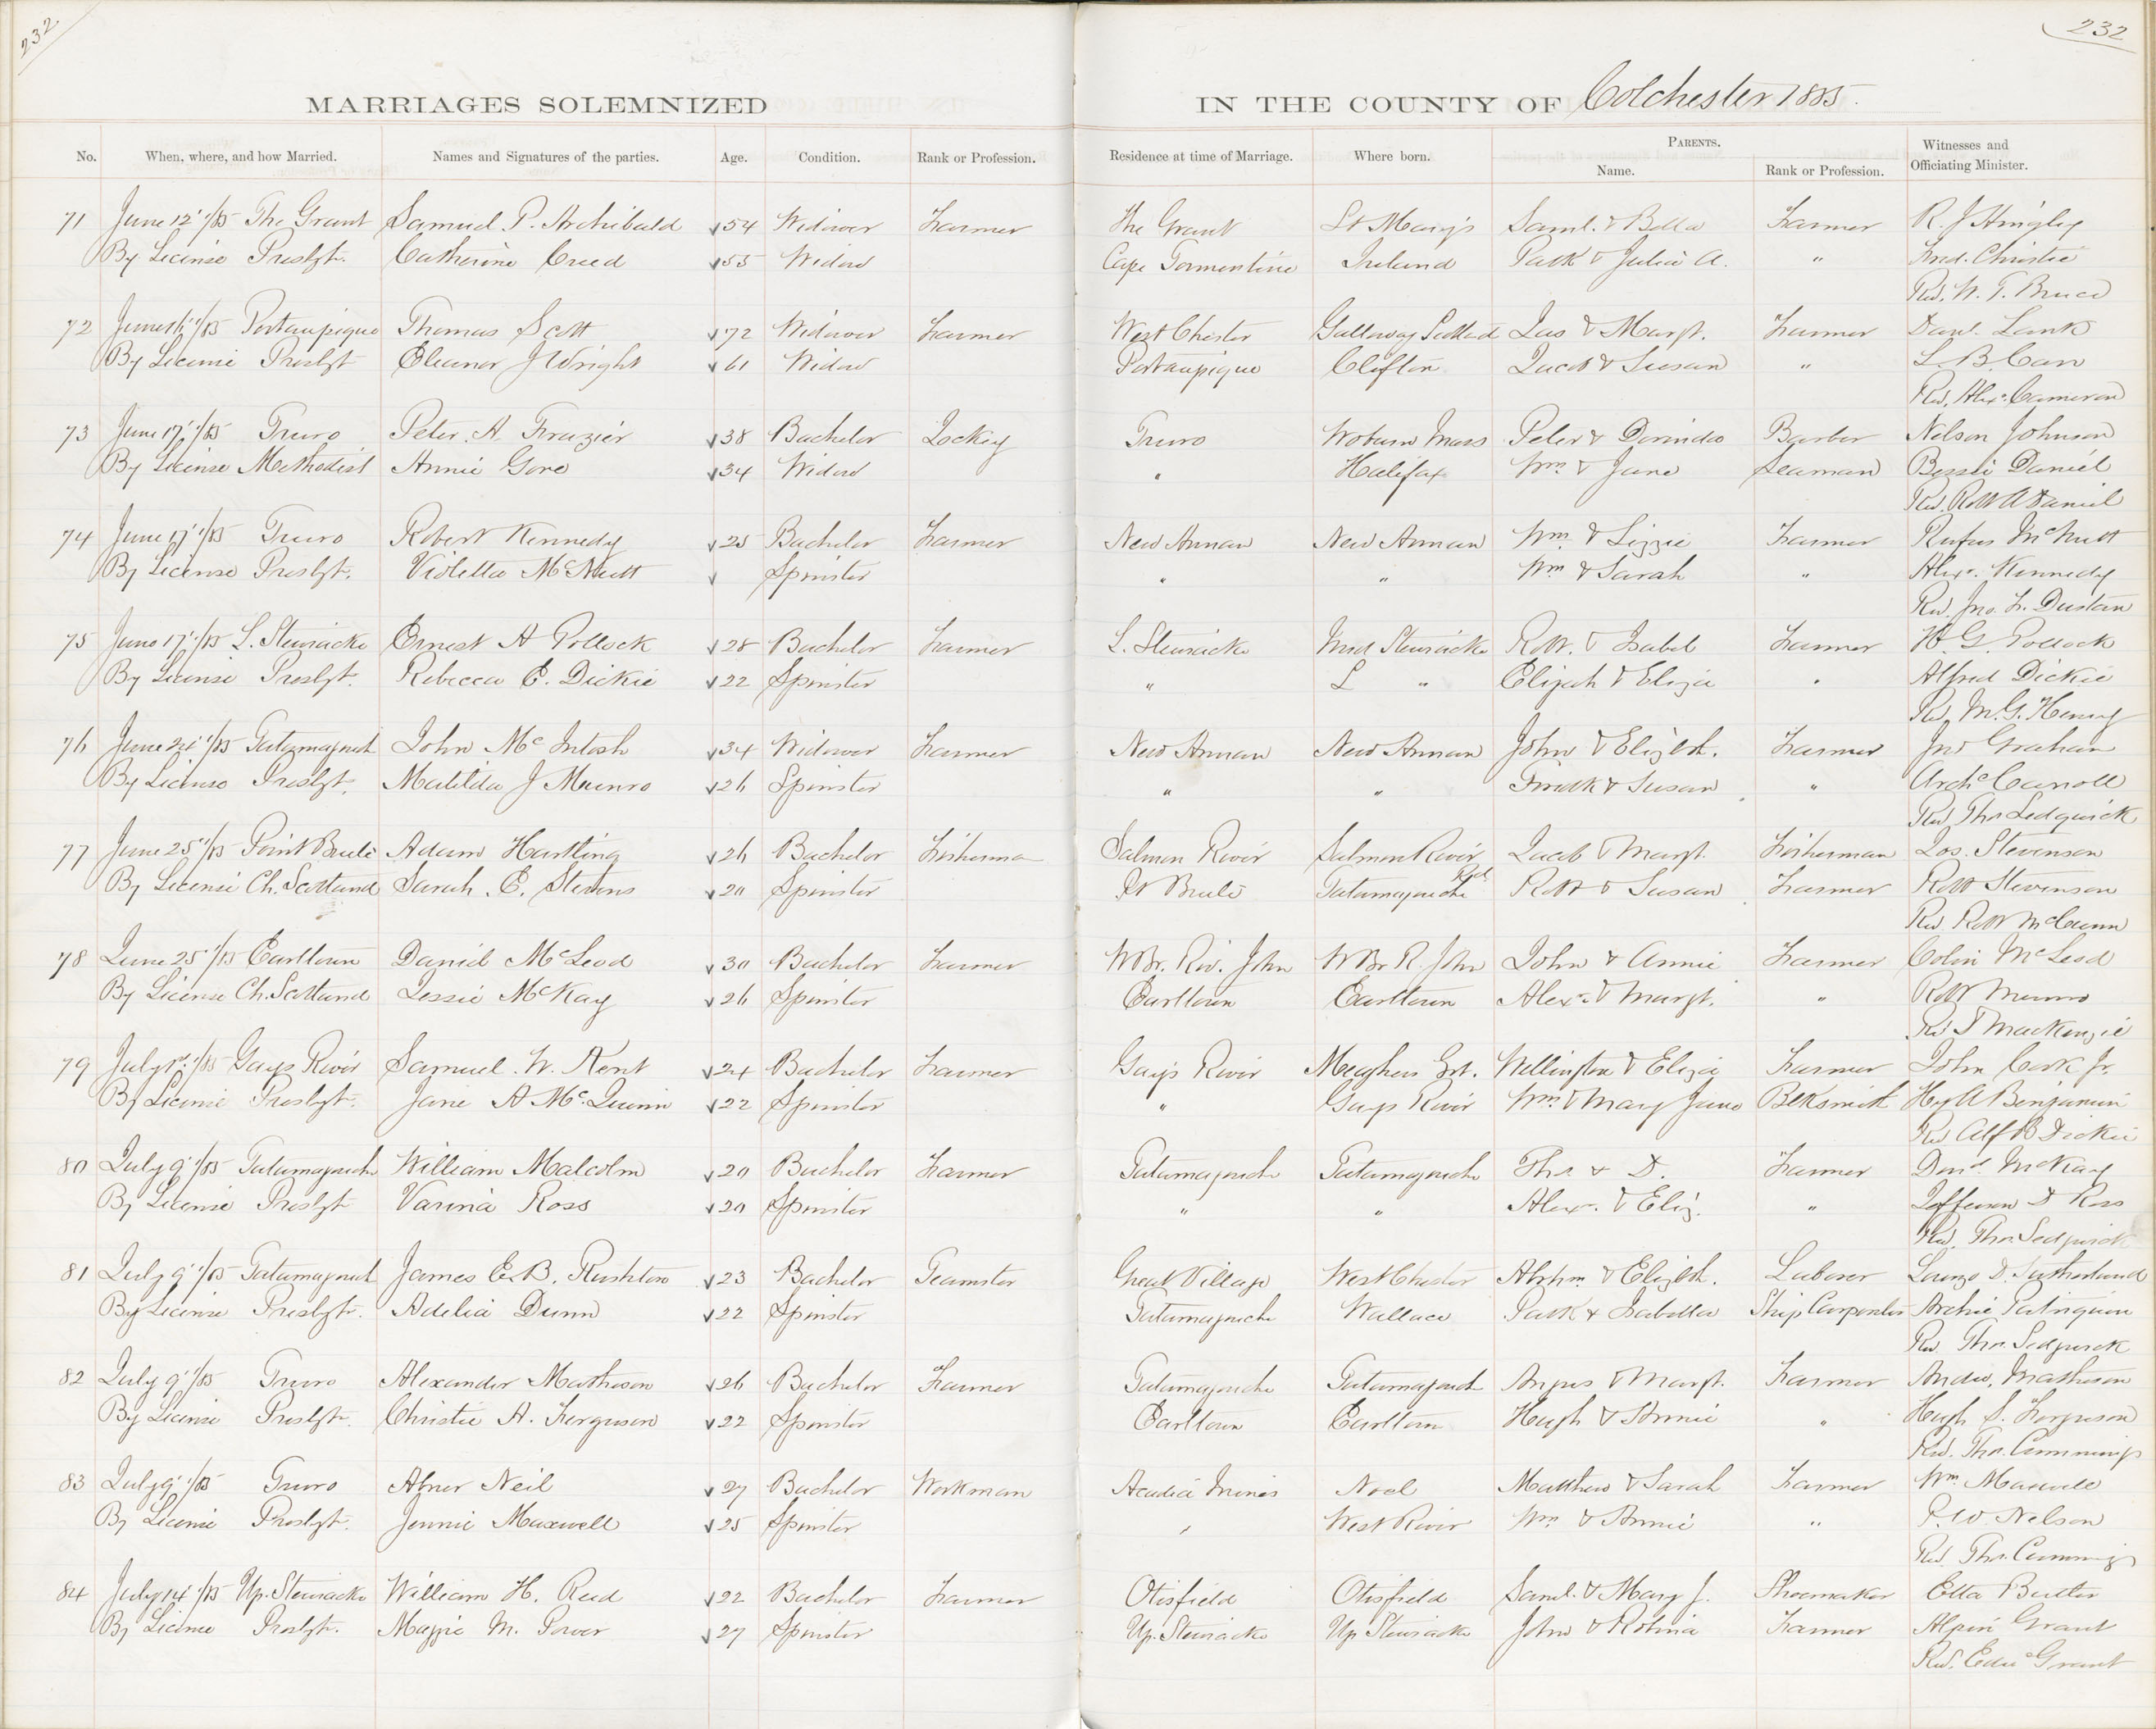 232
232
MARRIAGES SOLEMNIZED IN THE COUNTY OF Colchester 1885.
No. When, where, and how Married. Names and Signatures of the parties. Age. Condition. Rank or Profession. Residence at time of Marriage. Where born. PARENTS. Name. Rank or Profession. Witnesses and Officiating Minister.
71 June 12"/85 The Grant Samuel P. Archibald 54 Widower Farmer The Grant St Marys Saml. & Bella Farmer R. J Hingley
By License Presbyt. Catherine Creed 55 Widow Cape Tormentine Ireland Patk & Julia A. " Fred. Christie
Rev. W. T. Bruce
72 June 16"/85 Portaupique Thomas Scott 72 Widower Farmer West Chester Galloway Scotland Jas & Margt. Farmer Danl. Lank
By License Presbyt Eleanor J Wright 61 Widow Portaupique Clifton Jacob & Susan " L. B. Carr
Rev. Alexr. Cameron
73 June 17"/85 Truro Peter. A. Frazier 38 Bachelor Jockey Truro Woburn Mass Peter & Dorinda Barber Nelson Johnson
By License Methodist Annie Gore 34 Widow " Halifax Wm. & Jane Seaman Bessie Daniel
Rev. Robt A Daniel
74 June 17"/85 Truro Robert Kennedy 25 Bachelor Farmer New Annan New Annan Wm & Lizzie Farmer Rufus McNutt
By License Presbyt. Violetta McNutt Spinster " " Wm & Sarah " Alexr. Kennedy
Rev. Jno. L. Dustan
75 June 17"/85 L. Stewiacke Ernest A Pollock 28 Bachelor Farmer L. Stewiacke Mid Stewiacke Robt. & Isabel Farmer H. G. Pollock
By License Presbyt. Rebecca E. Dickie 22 Spinster " L " Elijah & Eliza " Alfred Dickie
Rev. M. G. Henry
76 June 24"/85 Tatamagouch John Mc Intosh 34 Widower Farmer New Annan New Annan John & Elizbth. Farmer Jno Graham
By License Presbyt. Matilda J Munro 26 Spinster " " & Susan " Archd Carroll
Rev Thos Sedgwick
77 June 25"/85 Point Brule Adam Hartling 26 Bachelor Fisherman Salmon River Salmon River Jacob & Margt. Fisherman Jos. Stevenson
By License Ch. Scotland Sarah. E. Stevens 20 Spinster Pt Brule Tatamagouche Rod Robt & Susan Farmer Robt Stevenson
Rev Robt McCunn
78 June 25"/85 Earltown Daniel McLeod 30 Bachelor Farmer W Br. Riv. John W Br R. John John & Annie Farmer Colin McLeod
By License Ch. Scotland Jessie McKay 26 Spinster Earltown Earltown Alexr. & Margt. " Robt Munro
Rev J MacKenzie
79 July 1st"/85 Gays River Samuel. W. Kent 24 Bachelor Farmer Gays River Meaghers Grt. Wellington & Eliza Farmer John Cook Jr.
By License Presbyt. Jane A Mc.Quinn 22 Spinster " Gays River Wm & Mary Jane Blksmith Hy A Benjamin
Rev Alf B Dickie
80 July 9"/85 Tatamagouche William Malcolm 20 Bachelor Farmer Tatamagouche Tatamagouche Thos. & D. Farmer Dond McKay
By License Presbyt Varina Ross 20 Spinster " " Alexr. & Eliz. " Jefferson D Ross
Rev. Thos. Sedgwick
81 July 9"/85 Tatamagouch James E. B. Rushton 23 Bachelor Teamster Great Village West Chester Abrhm & Elizbth. Laborer Lorenzo D. Sutherland
By License Presbyt. Adelia Dunn 22 Spinster Tatamagouche Wallace Patk & Isabella Ship Carpenter Archie Patriquin
Rev Thos. Sedgwick
82 July 9"/85 Truro Alexander Matheson 26 Bachelor Farmer Tatamagouche Tatamagouch Angus & Margt. Farmer Andw. Matheson
By License Presbyt. Christie A. Ferguson 22 Spinster Earltown Earltown Hugh & Annie " Hugh S. Ferguson
Rev. Thos. Cummings
83 July 9"/85 Truro Abner Neil 27 Bachelor Workman Acadia Mines Noel Matthew & Sarah Farmer Wm Maxwell
By License Presbyt. Jennie Maxwell 25 Spinster " West River Wm & Annie " P. W. Nelson
Rev. Thos. Cummings
84 July 14"/85 Up. Stewiacke William H. Reid 22 Bachelor Farmer Otisfield Otisfield Saml. & Mary J. Shoemaker Etta Butler
By License Presbyt. Maggie M. Power 27 Spinster Up. Stewiacke Up Stewiacke John & Robina Farmer Alpin Grant
Rev. Edw Grant